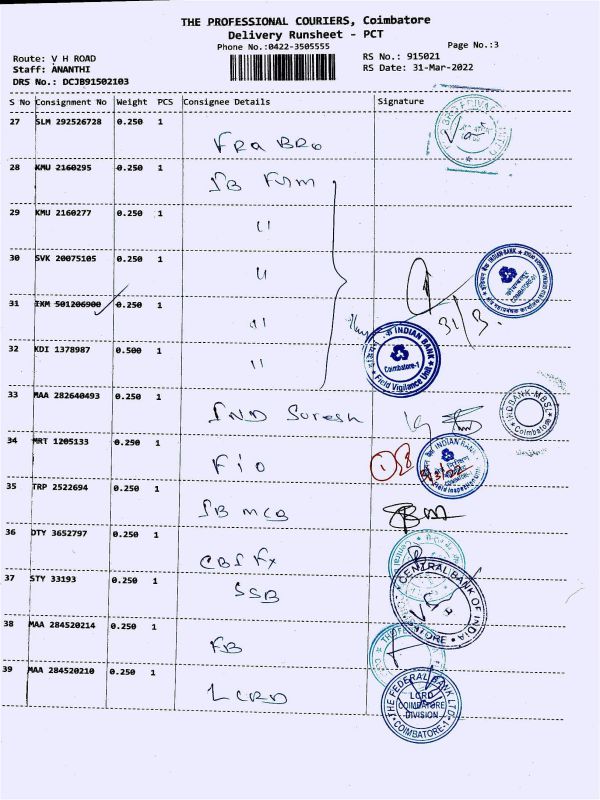 THE PROFESSIONAL COURIERS, Coimbatore
Delivery Runsheet - PCT
Phone No.:0422-3505555
Page No.:3
Route: V H ROAD
Staff: ANANTHI
DRS No.: DCJB91502103
RS No.: 915021
RS Date: 31-Mar-2022
S No Consignment No Weight PCS Consignee Details Signature
27 SLM 292526728 0.250 1
FRa BRo
28 KMU 2160295 0.250 1
IB Firm
29 KMU 2160277 0.250 1
"
30 SVK 20075105 0.250 1
"
31 IXM 501206900 0.250 1
"
31/3.
INDIAN BANK
COIMBATORE-01
32 KDI 1378987 0.500 1
"
INDIAN BANK
Coimbatore-1
Field Vigilance Unit
33 MAA 282640493 0.250 1
IND Suresh
INDBANK-MBSL
Coimbatore
34 MRT 1205133 0.250 1
Fio
1
INDIAN BANK
35 TRP 2522694 0.250 1
IB MCB
36 DTY 3652797 0.250 1
CBI Fx
37 STY 33193 0.250 1
SSB
CENTRAL BANK OF INDIA
38 MAA 284520214 0.250 1
FB
39 MAA 284520210 0.250 1
LCRD
THE FEDERAL BANK LTD.
LCRD
COIMBATORE
DIVISION
COIMBATORE-1